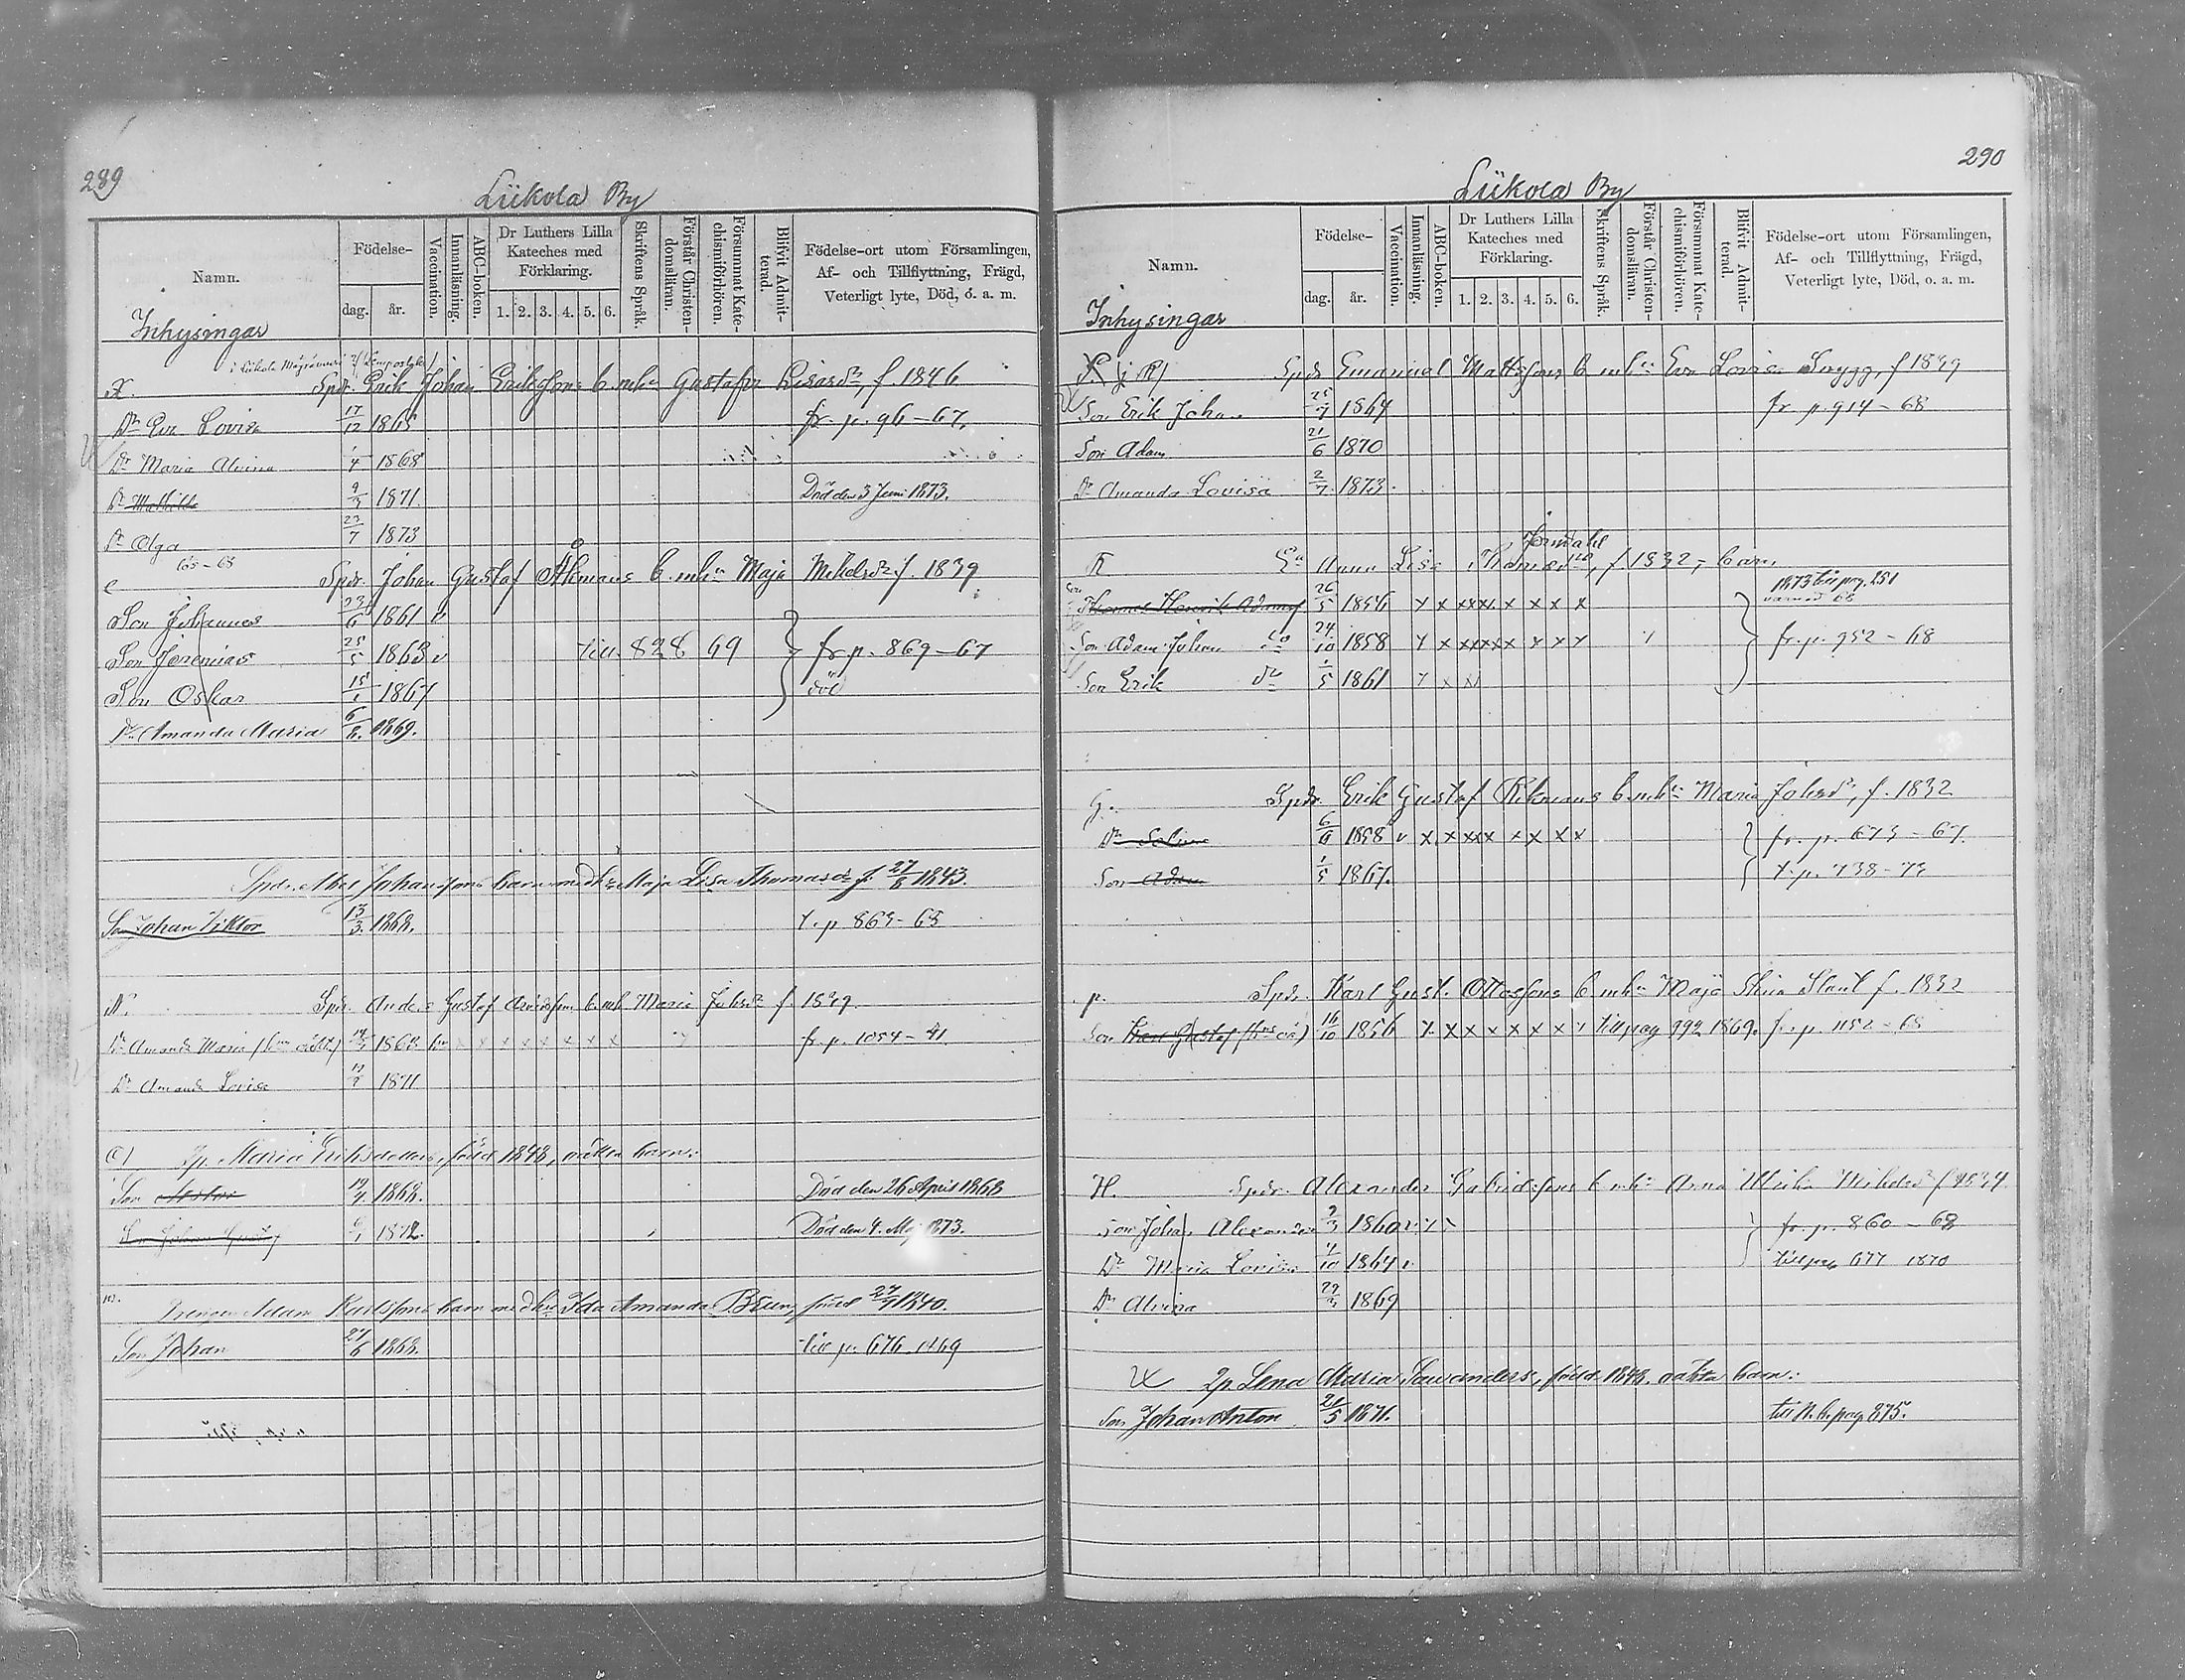 289
Liikola By
Namn.
Födelse-
dag.
år.
Vaccination.
Innanläsning.
ABC-boken.
Dr Luthers Lilla
Kateches med
Förklaring.
1. 2. 3. 4. 5. 6.
Skriftens Språk.
Förstår Christen-
domsläran.
Försummat Kate-
chismiförhören.
Blifvit Admit-
terad.
Födelse-ort utom Församlingen,
Af- och Tillflyttning, Frägd,
Veterligt lyte, Död, o. a. m.
Inhysingar
X. Spdr. Erik Johan Erikssons b. m. h. Gustafva Lisasdr, f. 1846
Dr Eva Lovisa 17/12 1865 fr. p. 96-67.
Dr Maria Alvina 1868
Dr Mathilda 1871. Död den 3 Juni 1873.
Dr Olga 1873
e Spdr. Johan Gustaf Åkmans b. m. hn Maja Mikelsdr f. 1839
Son Johannes 1861 v
Son Jeremias 25/5 1863 v till 828 69 fr p. 869-67
Son Oskar 1867 död
Dr Amanda Maria 1869.
Spdr. Abel Johanssons barn med h. Maja Lisa Thomasdr f. 27/8 1843.
Son Johan Viktor 13/3 1868. t. p 863-68
N. Spdr. Anders Gustaf Arvidssons b. m. h. Maria Johsdr f. 1839.
Dr Amanda Maria 1868 x x x x x x x fr. p. 1054-71
Dr Amanda Lovisa 1871
C) Ip. Maria Eriksdotters, född 1848, oäkta barn:
Son 1868. Död den 26 April 1868
Son Johan Gustaf 1872. Död den 4. Maj 1873.
Drengen Adam Karlssons barn med h. Ida Amanda Brun, född 1840.
Son Johan 1868. till p. 676 1869
290
Liikola By
Namn.
Födelse-
dag.
år.
Vaccination.
Innanläsning.
ABC-boken.
Dr Luthers Lilla
Kateches med
Förklaring.
1. 2. 3. 4. 5. 6.
Skriftens Språk.
Förstår Christen-
domsläran.
Försummat Kate-
chismiförhören.
Blifvit Admit-
terad.
Födelse-ort utom Församlingen,
Af- och Tillflyttning, Frägd,
Veterligt lyte, Död, o. a. m.
Inhysingar
Spdr Emanuel Mattssons b m hn Eva Lovisa Snygg, f 1839
Son Erik Johan 25/7 1864 fr. p. 914-68
Son Adam 21/6 1870
Dr Amanda Lovisa 2/7 1873.
Enk Anna Lisa Thomasdr, f 1832, barn,
Son Thomas Henrik Adamss 26/5 1856 x x xxx x x x x 1873 till pag. 251
Son Adam Johan do 24/10 1858 x x xxxxx x x x fr. p. 952-68
Son Erik do 1/5 1861
G. Spdr. Erik Gustaf Rikmans b. m hn Maria Johsdr, f. 1832
Dr 1858 v x x xxx x x x x fr. p. 673-67.
Son Adam 1/5 1867. t. p. 738-73
p. Spdr. Karl Gust. Ottossons b m hn Maja Stina f. 1832
Son Karl Gustaf 16/10 1856 x x x x x x x till pag 992 1869. fr. p. 1152-68
H. Spdr. Alexander Gabrielssons b m hn Anna Ulrika Mikelsdr f 1839
Son Johan Alexander 9/3 1860 fr. p. 860-68
Dr Maria Lovisa 1864 till pag 677 1870
Dr Alvina 1869
Ip Lena Maria, född 1848. oäkta barn:
Son Johan Anton 1871. till N. b. pag 875.